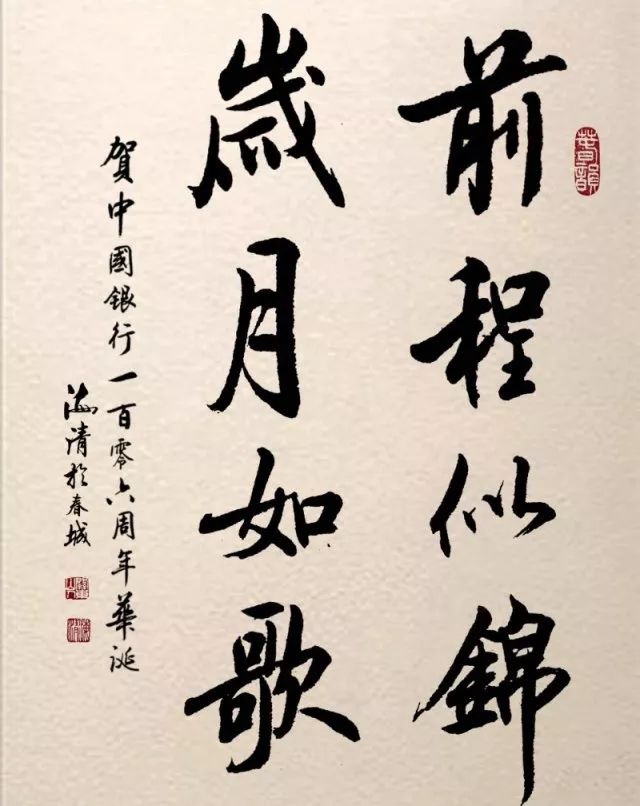 前程似錦
歲月如歌
賀中國銀行一百零六周年華誕
海清於春城